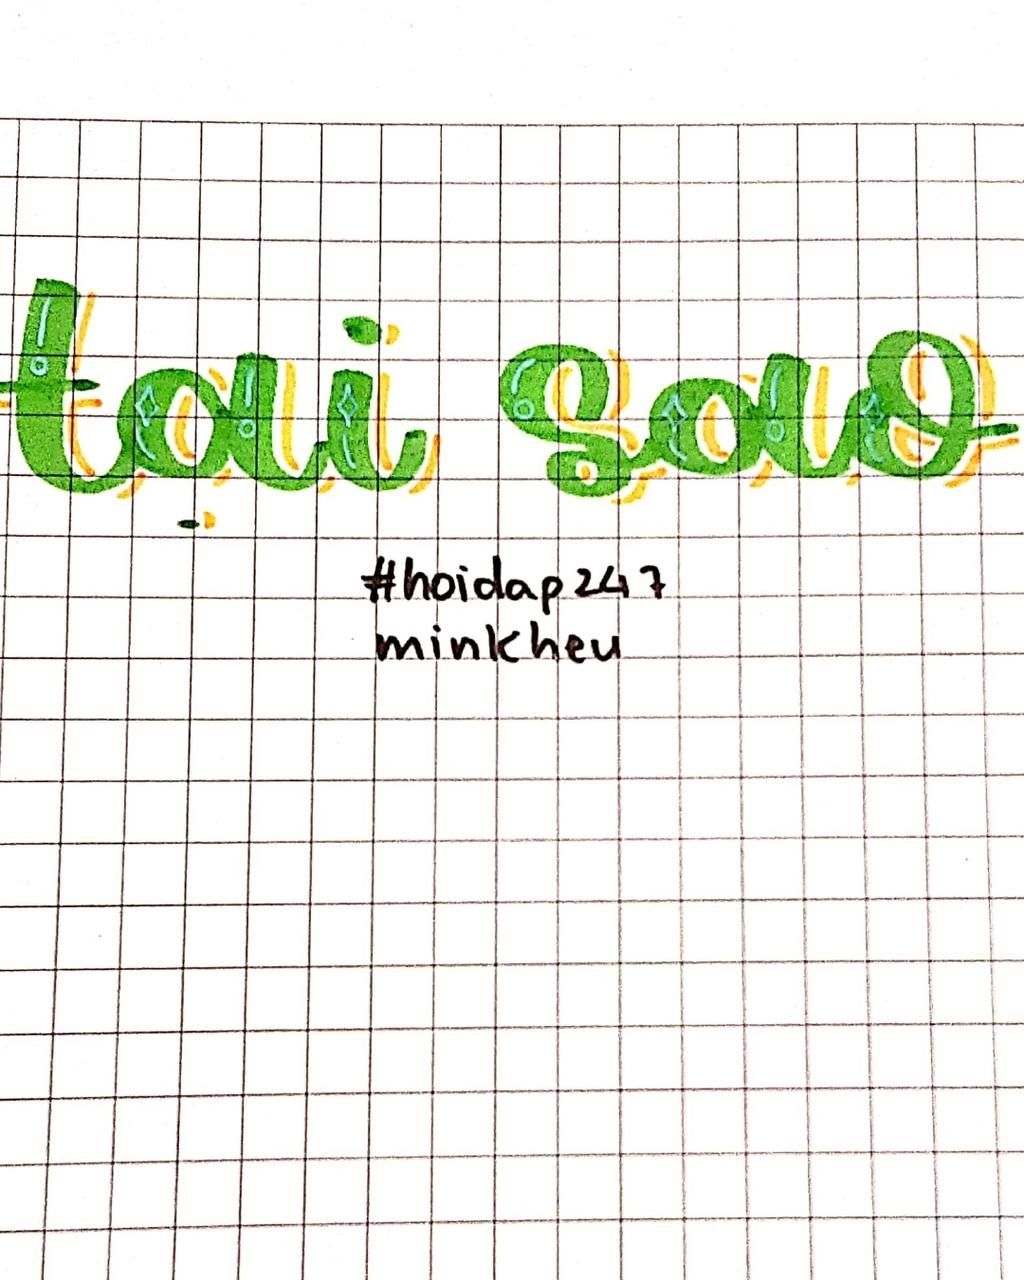 tại sao
#hoidap247
minkheu